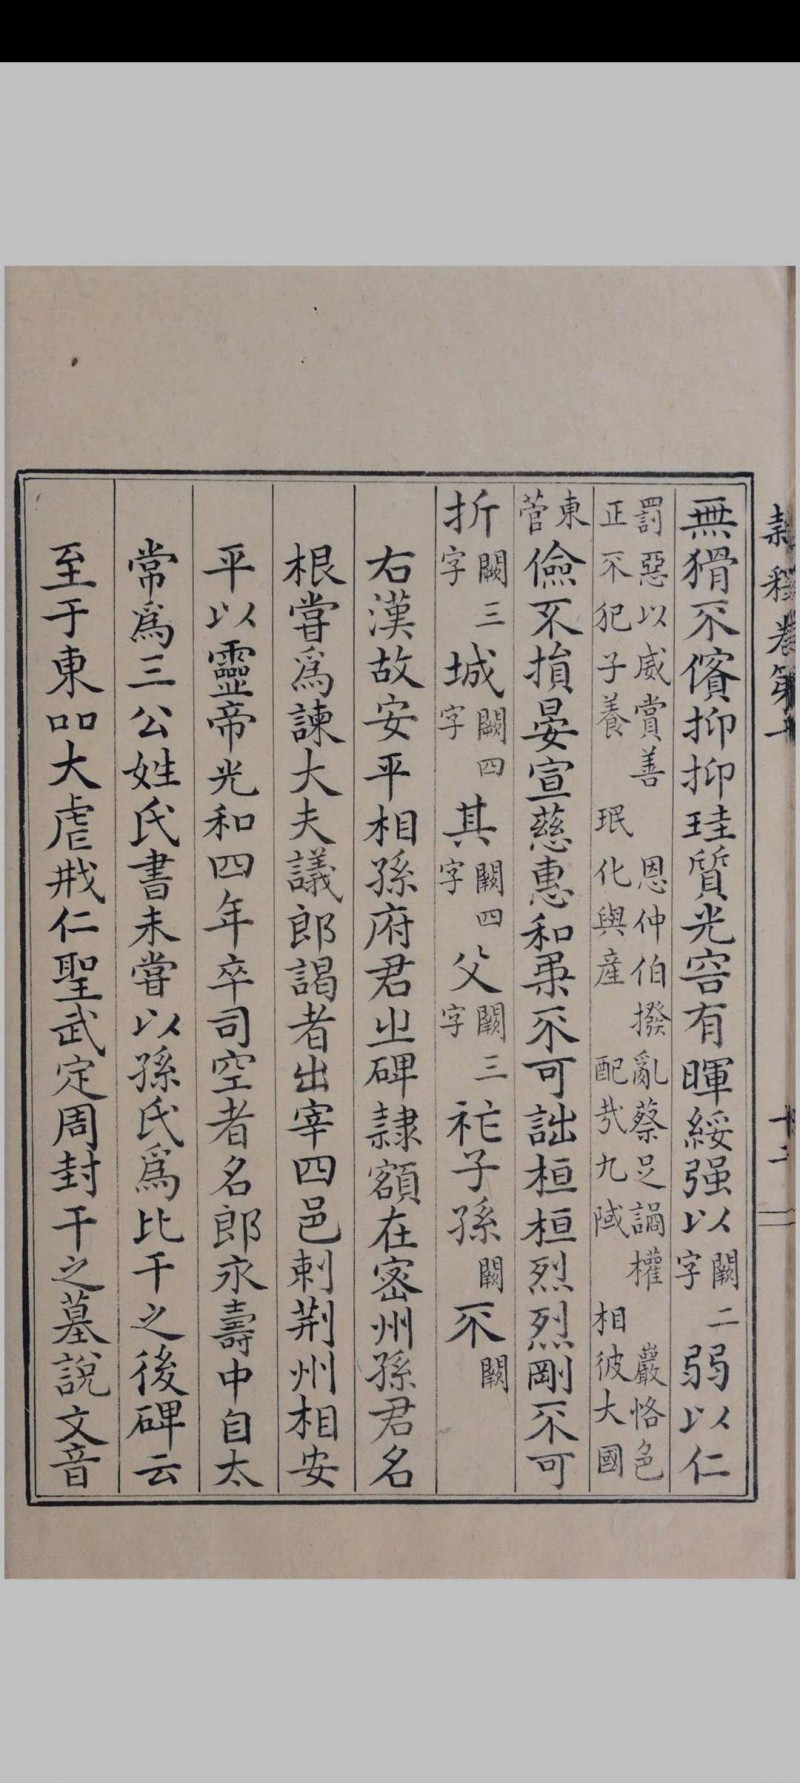 隸釋卷第十
十二
無猾不儐抑抑珪質光容有暉綏强以闕二字弱以仁
罰惡以威賞善 恩仲伯撥亂蔡足譎權 嚴恪色
正不犯子養 珉化與產 配㢤九陚 相彼大國
東菅儉不損晏宣慈惠和柔不可詘桓桓烈烈剛不可
折闕三字城闕四字其闕四字父闕三字祂子孫闕不闕
右漢故安平相孫府君㞢碑隷額在密州孫君名
根嘗爲諫大夫議郎謁者出宰四邑刺荆州相安
平以靈帝光和四年卒司空者名郎永壽中自太
常爲三公姓氏書未嘗以孫氏爲比干之後碑云
至于東㕣大虐戕仁聖武定周封干之墓說文音